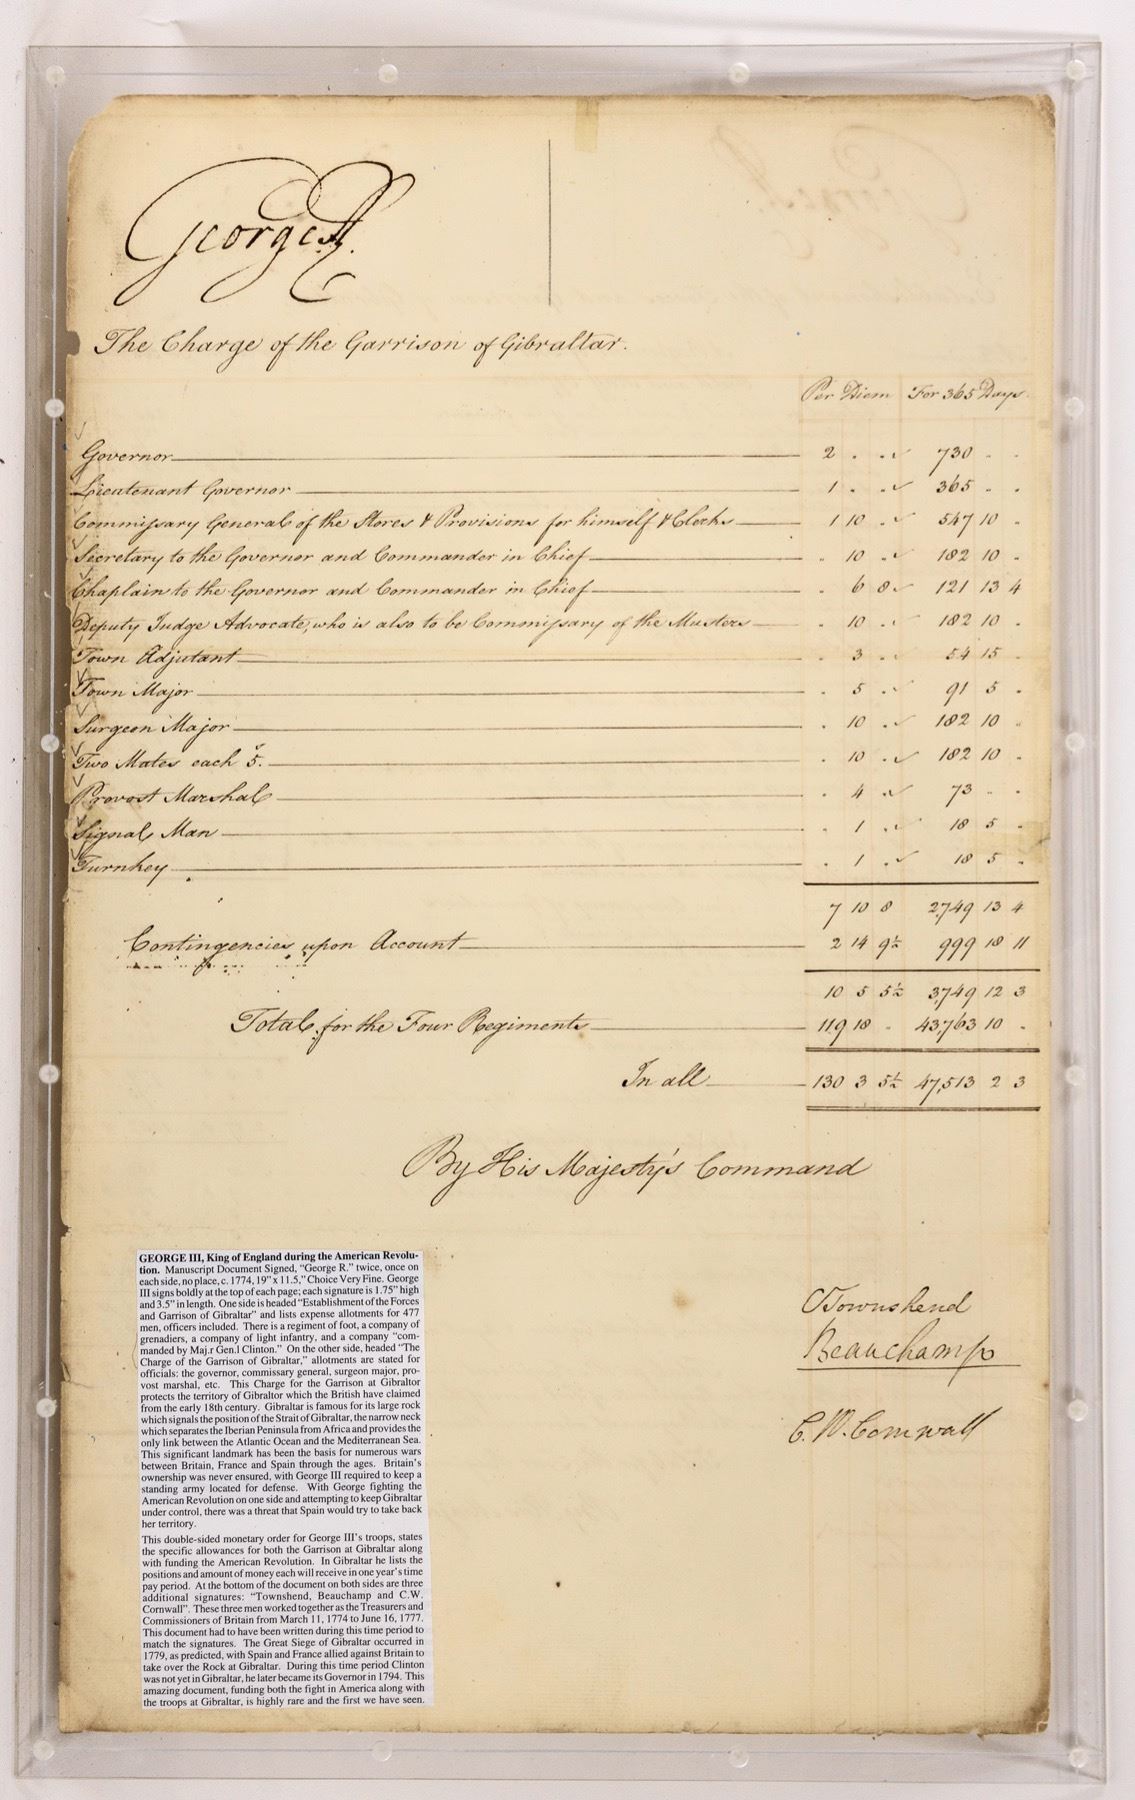 George R.
The Charge of the Garrison of Gibraltar.
Per Diem For 365 Days
Governor 2 . . 730 . .
Lieutenant Governor 1 . . 365 . .
Commissary General of the Stores & Provisions for himself & Clerks 1 10 . 547 10 .
Secretary to the Governor and Commander in Chief . 10 . 182 10 .
Chaplain to the Governor and Commander in Chief . 6 8 121 13 4
Deputy Judge Advocate, who is also to be Commissary of the Musters . 10 . 182 10 .
Town Adjutant . 3 . 54 15 .
Town Major . 5 . 91 5 .
Surgeon Major . 10 . 182 10 .
Two Mates each 5.s . 10 . 182 10 .
Provost Marshal . 4 . 73 . .
Signal Man . 1 . 18 5 .
Turnkey . 1 . 18 5 .
7 10 8 2,749 13 4
Contingencies upon Account 2 14 9½ 999 18 11
10 5 5½ 3,749 12 3
Total for the Four Regiments 119 18 . 43,763 10 .
In all 130 3 5½ 47,513 2 3
By His Majesty's Command
Townshend
Beauchamp
C. W. Cornwall
GEORGE III, King of England during the American Revolu-
tion. Manuscript Document Signed, "George R." twice, once on
each side, no place, c. 1774, 19" x 11.5," Choice Very Fine. George
III signs boldly at the top of each page; each signature is 1.75" high
and 3.5" in length. One side is headed "Establishment of the Forces
and Garrison of Gibraltar" and lists expense allotments for 477
men, officers included. There is a regiment of foot, a company of
grenadiers, a company of light infantry, and a company "com-
manded by Maj.r Gen.l Clinton." On the other side, headed "The
Charge of the Garrison of Gibraltar," allotments are stated for
officials: the governor, commissary general, surgeon major, pro-
vost marshal, etc. This Charge for the Garrison at Gibraltor
protects the territory of Gibraltor which the British have claimed
from the early 18th century. Gibraltar is famous for its large rock
which signals the position of the Strait of Gibraltar, the narrow neck
which separates the Iberian Peninsula from Africa and provides the
only link between the Atlantic Ocean and the Mediterranean Sea.
This significant landmark has been the basis for numerous wars
between Britain, France and Spain through the ages. Britain's
ownership was never ensured, with George III required to keep a
standing army located for defense. With George fighting the
American Revolution on one side and attempting to keep Gibraltar
under control, there was a threat that Spain would try to take back
her territory.
This double-sided monetary order for George III's troops, states
the specific allowances for both the Garrison at Gibraltar along
with funding the American Revolution. In Gibraltar he lists the
positions and amount of money each will receive in one year's time
pay period. At the bottom of the document on both sides are three
additional signatures: "Townshend, Beauchamp and C.W.
Cornwall". These three men worked together as the Treasurers and
Commissioners of Britain from March 11, 1774 to June 16, 1777.
This document had to have been written during this time period to
match the signatures. The Great Siege of Gibraltar occurred in
1779, as predicted, with Spain and France allied against Britain to
take over the Rock at Gibraltar. During this time period Clinton
was not yet in Gibraltar, he later became its Governor in 1794. This
amazing document, funding both the fight in America along with
the troops at Gibraltar, is highly rare and the first we have seen.